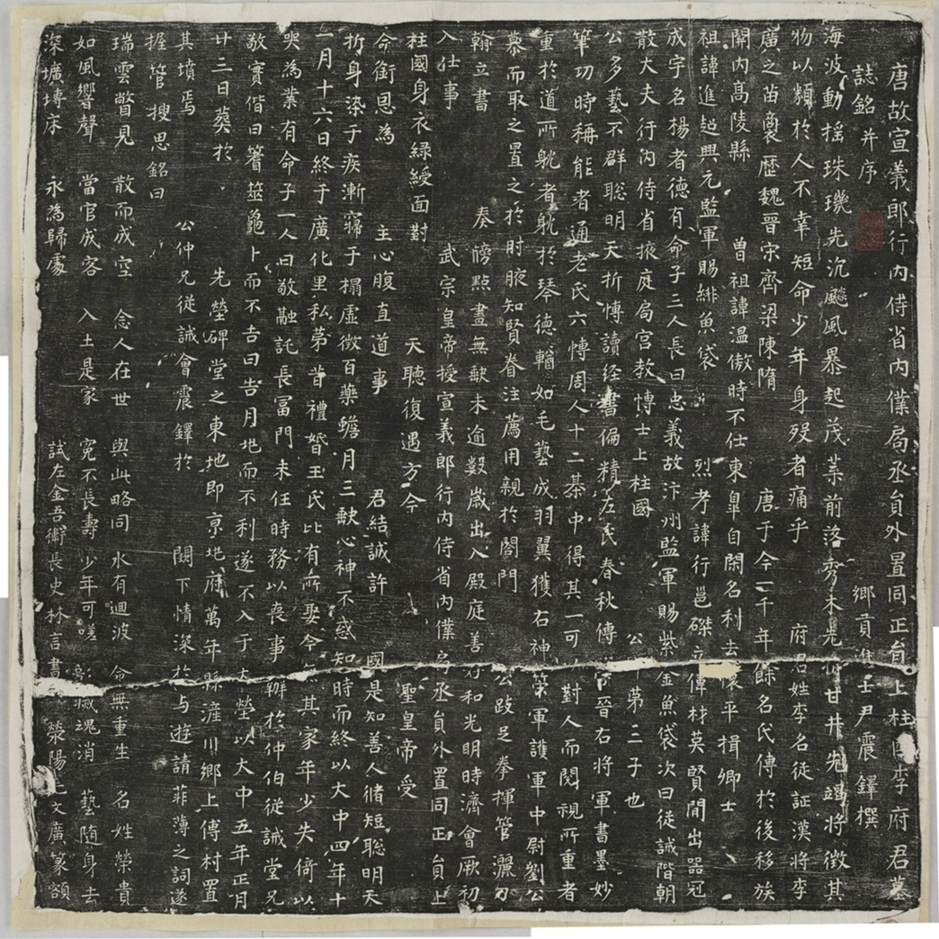 唐故宣義郎行內侍省內僕局丞員外置同正員上柱國李府君墓
誌銘并序 鄉貢進士尹震鐸撰
海波動搖珠璣先沉飈風暴起茂葉前落秀木先凋甘井先竭將徵其
物以類於人不幸短命少年身歿者痛乎 府君姓李名從証漢將李
廣之苗裔歷魏晉宋齊梁陳隋 唐于今一千年餘名氏傳於後移族
關內高陵縣 曾祖諱溫傲時不仕東皐自閑名利去懷平揖卿士
祖諱進超興元監軍賜緋魚袋 烈考諱行邕磔立偉材莫賢間出器冠
成宇名楊者德有命子三人長曰忠義故汴州監軍賜紫金魚袋次曰從誠階朝
散大夫行內侍省掖庭局宮教博士上柱國 公第三子也
公多藝不群聰明天折愽讀経書偏精左氏春秋傳晉右將軍書墨妙
筆切時稱能者通老氏六愽周人十二棊中得其一可對人而閱視所重者
重於道所躭者躭於琴德輶如毛藝成羽翼獲右神策軍護軍中尉劉公
慕而取之置之於肘腋知賢眷注薦用親於閤門 公跂足拳揮管灑刃
翰立書 奏牓點畫無歇未逾數歲出入殿庭善好和光明時濟會厥初
入仕事 武宗皇帝授宣義郎行內侍省內僕局丞員外置同正員上
柱國身衣綠綬面對 天聽復遇方今 聖皇帝受
命銜恩為 主心腹直道事 君結誠許 國是知善人脩短聦明夭
折身染于疾漸寢于榻虛徵百藥蟾月三虧心神不惑知時而終以大中四年十
一月十六日終于廣化里私第昔禮婚王氏比有所娶今其家年少失倚以
哭為業有命子一人曰敬融託長冨門未任時務以喪事辦於仲伯從誡堂兄
敬實偕曰籌筮龜卜而不吉曰吉月地而不利遂不入于大塋以大中五年正月
廿三日葬於 先塋碑堂之東地即京地府萬年縣滻川鄉上傅村置
其墳焉 公仲兄從誡會震鐸於 闕下情深於与遊請菲薄之詞遂
握管搜思銘曰
瑞雲瞥見 散而成空 念人在世 與此略同 水有迴波 命無重生 名姓榮貴
如風響聲 當官成客 入土是家 寃不長壽 少年可嗟 魂消 藝隨身去
深壙塼床 永為歸處 試左金吾衛長史林言書 滎陽毛文廣篆額